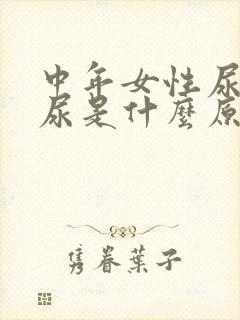 中年女性尿
尿是什麼原
隽眷葉子